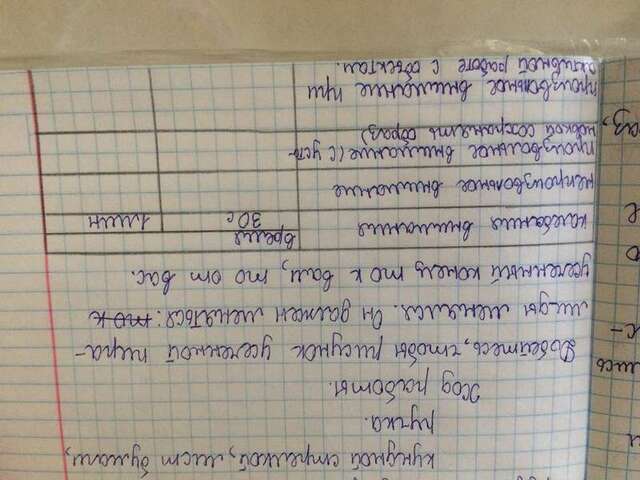 кундной стрелкой, лист бумаги,
ручка.
Ход работы.
Добейтесь, чтобы рисунок усеченной пира-
миды менялся. Он должен меняться: то к
усеченный конец то к вам, то от вас.
колебания внимания
время
30с
1мин
непроизвольное внимание
произвольное внимание (с уст-
новкой сохранять образ)
произвольное внимание при
активной работе с объектом.